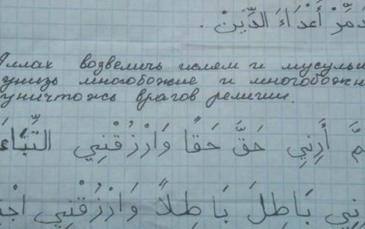 دَمِّرْ أَعْدَاءَ الدِّينْ.
ллах возвеличь ислам и мусульм
унизь многобожие и многобожн
уничтожь врагов религии.
مَّ أَرِنِي حَقَّ حَقًا وَارْزُقْنِي التِّبَاعَ
رِنِي بَاطِلَ بَاطِلاً وَارْزُقْنِي اجْتِ